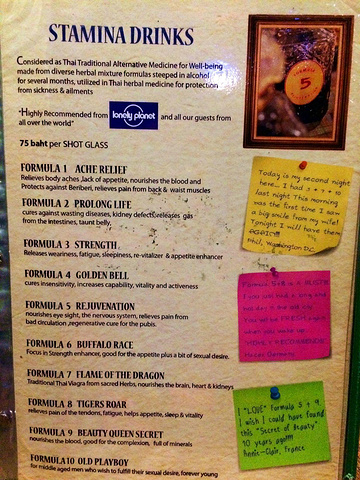 STAMINA DRINKS
Considered as Thai Traditional Alternative Medicine for Well-being
made from diverse herbal mixture formulas steeped in alcohol
for several months, utilized in Thai herbal medicine for protection
from sickness & ailments
"Highly Recommended from lonely planet and all our guests from
all over the world"
75 baht per SHOT GLASS
FORMULA 1 ACHE RELIEF
Relieves body aches ,lack of appetite, nourishes the blood and
Protects against Beriberi, relieves pain from back & waist muscles
FORMULA 2 PROLONG LIFE
cures against wasting diseases, kidney defects,releases gas
from the intestines, taunt belly,
FORMULA 3 STRENGTH
Releases weariness, fatigue, sleepiness, re-vitalizer & appetite enhancer
FORMULA 4 GOLDEN BELL
cures insensitivity, increases capability, vitality and activeness
FORMULA 5 REJUVENATION
nourishes eye sight, the nervous system, relieves pain from
bad circulation ,regenerative cure for the pubis.
FORMULA 6 BUFFALO RACE
Focus in Strength enhancer, good for the appetite plus a bit of sexual desire.
FORMULA 7 FLAME OF THE DRAGON
Traditional Thai Viagra from sacred Herbs, nourishes the brain, heart & kidneys
FORMULA 8 TIGERS ROAR
relieves pain of the tendons, fatigue, helps appetite, sleep & vitality
FORMULA 9 BEAUTY QUEEN SECRET
nourishes the blood, good for the complexion, full of minerals
FORMULA 10 OLD PLAYBOY
for middle aged men who wish to fulfill their sexual desire, forever young
FORMULA
5
Today is my second night
here... I had
last night This morning
was the first time I saw
a big smile from my wife!
Tonight I will have them
AGAIN!!!
Phil, Washington DC
Formula 5+8 is a
if you
You will be FRESH again
when you wake up
HIGHLY RECOMMENDED
Germany
I "LOVE" Formula 5 + 9
I wish I could have found
this "Secret of Beauty"
10 years ago!!!!
France